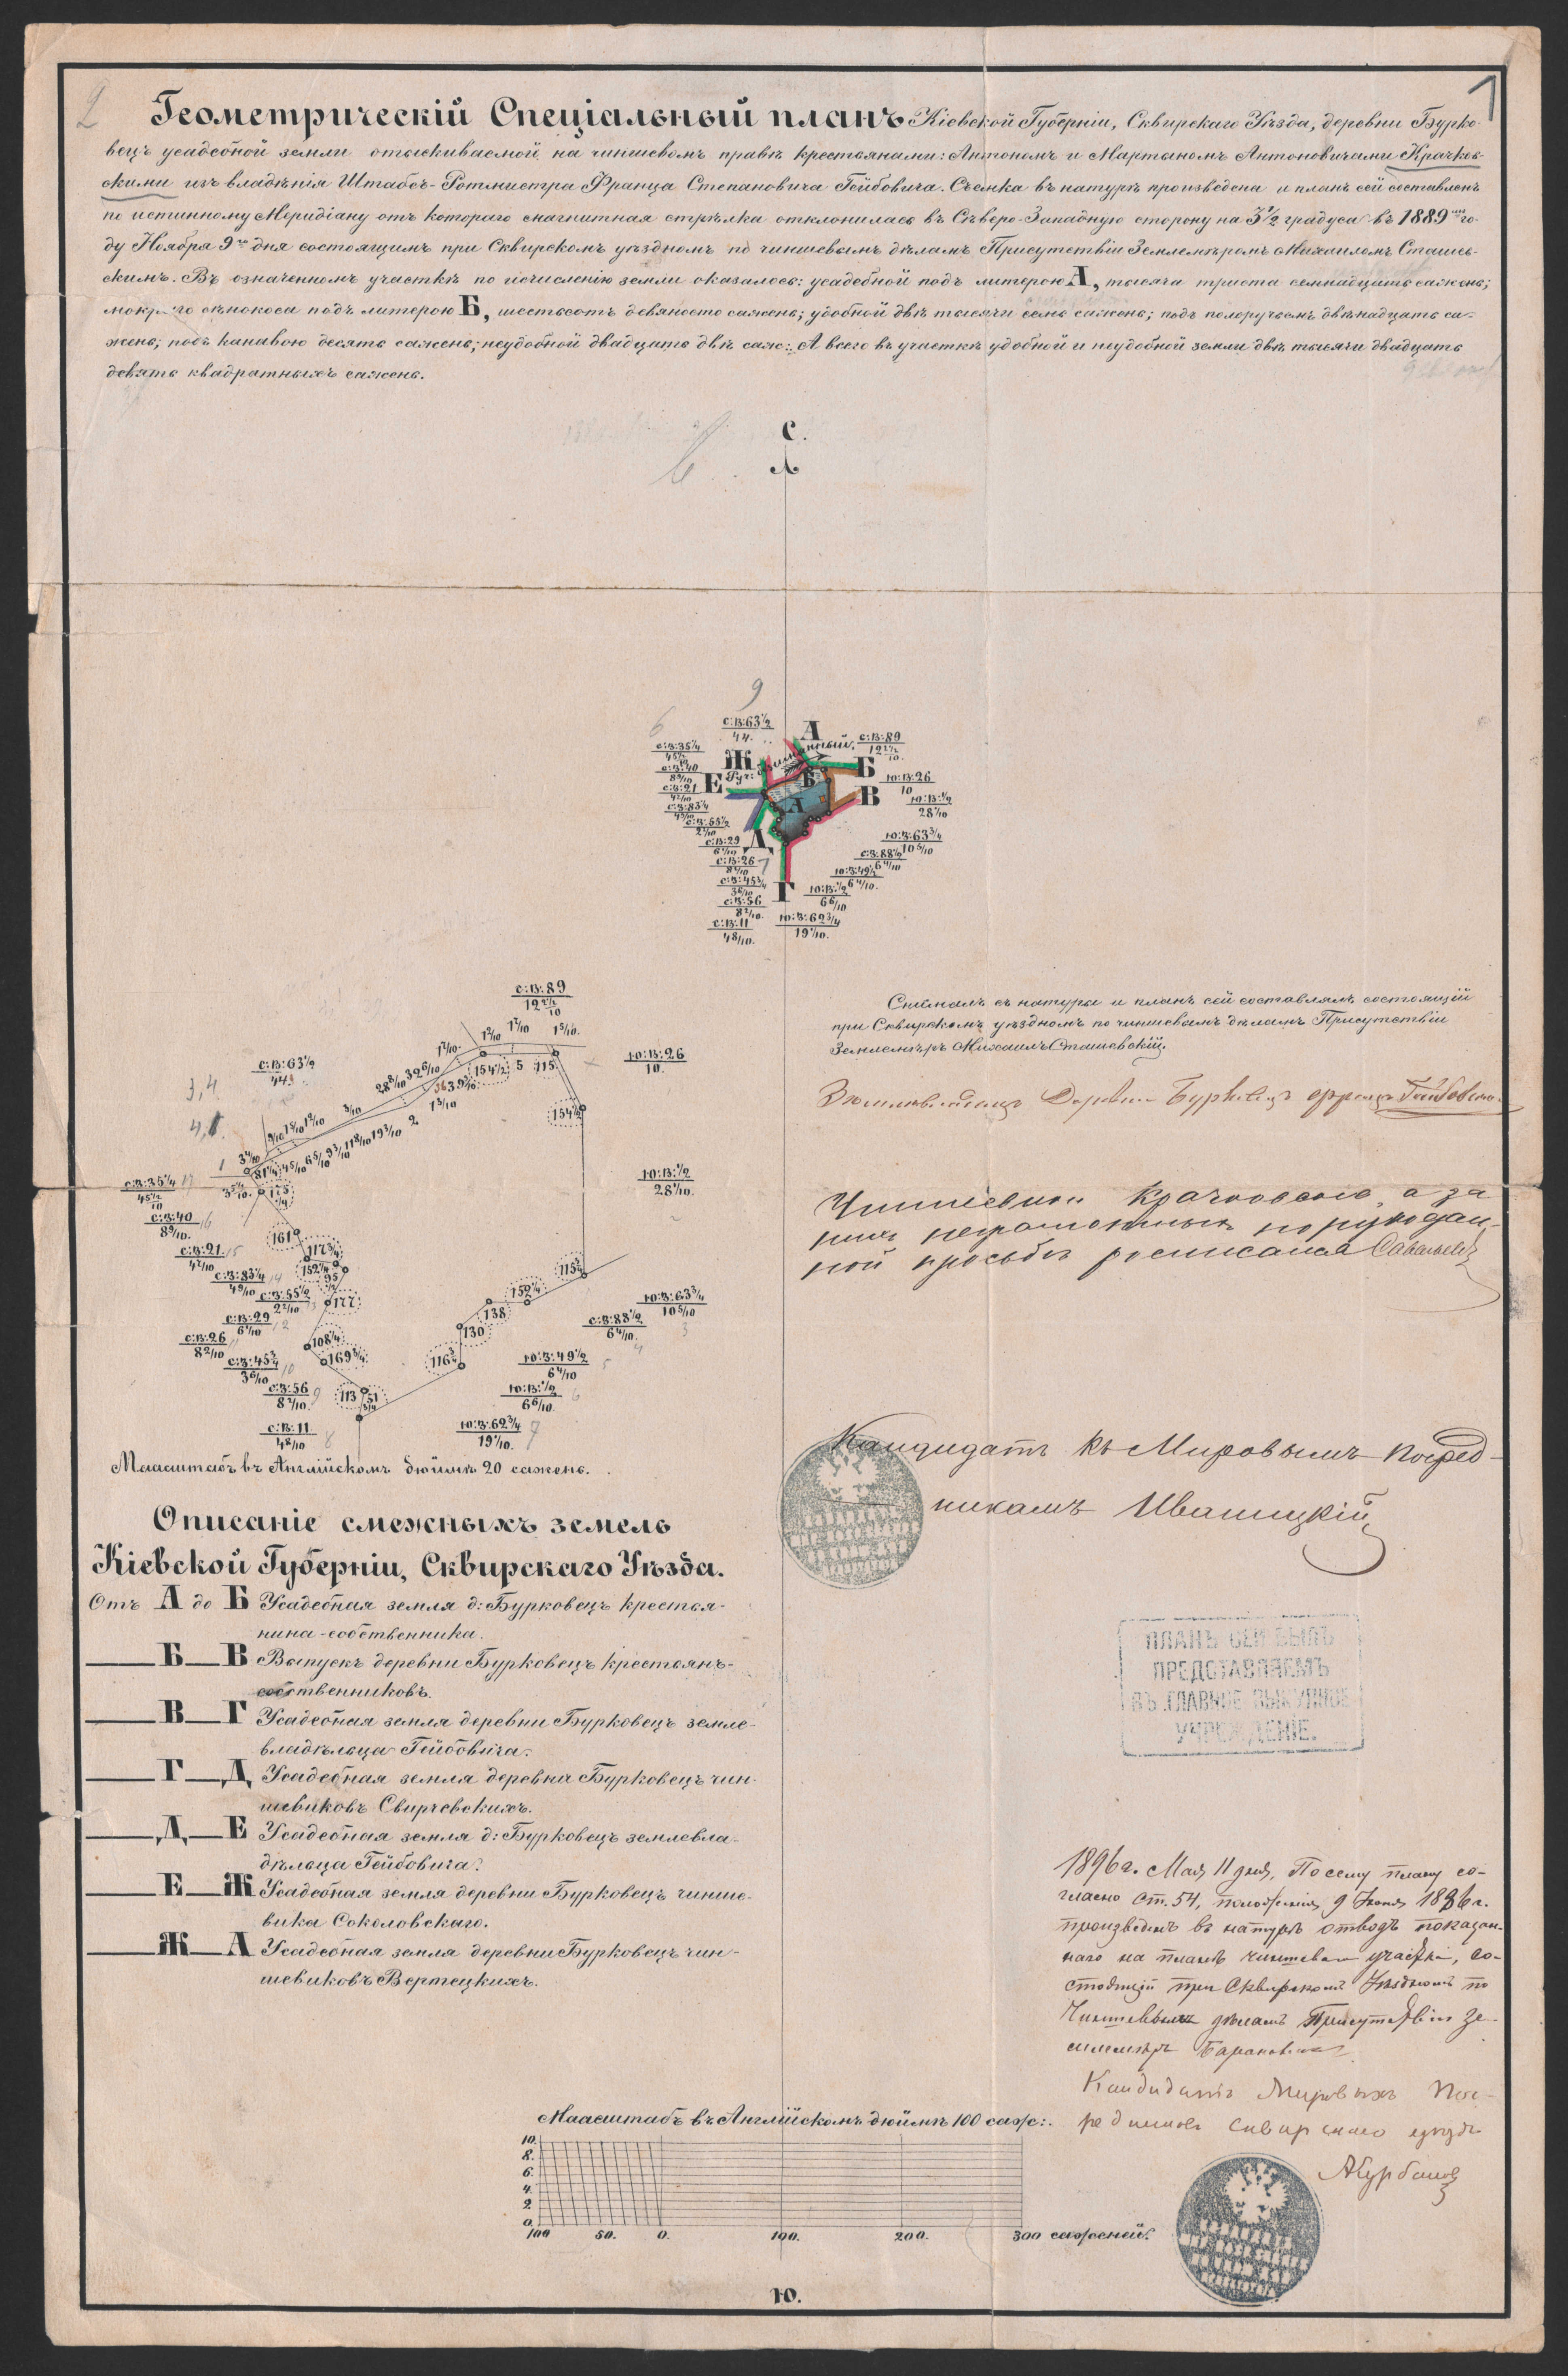 2
1
Геометрическій Спеціальный планъ Кіевской Губерніи, Сквирскаго Уѣзда, деревни Бурко-
вецъ усадебной земли отыскиваемой на чиншевомъ правѣ крестьянами: Антономъ и Мартыномъ Антоновичами Крачков-
скими изъ владѣнія Штабсъ-Ротмистра Франца Степановича Гейбовича. Съемка въ натурѣ произведена и планъ сей составленъ
по истинному Меридіану отъ котораго магнитная стрѣлка отклонилась въ Сѣверо-Западную сторону на 3½ градуса въ 1889мъ го-
ду Ноября 9го дня состоящимъ при Сквирскомъ уѣздномъ по чиншевымъ дѣламъ Присутствіи Землемѣромъ Михаиломъ Сташев-
скимъ. Въ означенномъ участкѣ по исчисленію земли оказалось: усадебной подъ литерою А, тысяча триста семнадцать сажень;
мокраго сѣнокоса подъ литерою Б, шестьсотъ девяносто сажень; удобной двѣ тысячи семь сажень; подъ полоручьемъ двѣнадцать са-
жень; подъ канавою десять сажень; неудобной двадцать двѣ саж:. А всего въ участкѣ удобной и неудобной земли двѣ тысячи двадцать
девять квадратныхъ сажень.
С.
9
6
с:в:63½
44.
А
с:в:89
12 2½/10.
с:з:35¼
45½/10
Ж
Руч: безъимянный.
Б
с:з:40
8 9/10
Е
Б
ю:в:26
10
с:з:21
4 2/10
А
В
ю:в:½
28 1/10
с:з:83¼
4 9/10
с:з:55½
2 2/10
ю:з:63¾
10 5/10
с:в:29
6 1/10
Д
с:з:88½
6 4/10
с:в:26
8 2/10
7
ю:з:49½
6 4/10.
с:з:45¾
3 6/10
Г
ю:в:½
6 6/10
с:з:56
8 7/10.
с:в:11
4 8/10.
ю:з:62¾
19 1/10.
с:в:89
12 2½/10
с:в:63½
44
ю:в:26
10.
3,4
154½ 5 115
154½
81¼
175¼
с:з:35¼
45½/10
17
ю:в:½
28 1/10.
с:з:40
8 9/10.
16
161
с:з:21
4 2/10
15
117¾
152¼
с:з:83¼
4 9/10
14
95½
115¼
с:з:55½
2 2/10
13
177
152¼
ю:з:63¾
10 5/10
3
с:в:29
6 1/10
12
138
с:з:88½
6 4/10.
4
130
с:в:26
8 2/10
11
108¼
169¾
116¾
ю:з:49½
6 4/10
5
с:з:45¾
3 6/10
10
с:з:56
8 7/10.
9
113
51¾
ю:в:½
6 6/10.
6
с:в:11
4 8/10
8
ю:з:62¾
19 1/10.
7
Маасштабъ въ Англійскомъ дюймѣ 20 сажень.
Снималъ съ натуры и планъ сей составлялъ состоящій
при Сквирскомъ уѣздномъ по чиншевымъ дѣламъ Присутствіи
Землемѣръ Михаилъ Сташевскій.
Землевладѣлецъ Деревни Бурковецъ Францъ Гейбовичъ
Чиншевики Крачковскіе, а за
нихъ неграмотныхъ по рукодан-
ной просьбѣ росписался
Кандидатъ къ Мировымъ Посред-
никамъ Ивашицкій
Описаніе смежныхъ земель
Кіевской Губерніи, Сквирскаго Уѣзда.
Отъ А до Б Усадебная земля д: Бурковецъ крестья-
нина-собственника.
Б В Выпускъ деревни Бурковецъ крестьянъ-
собственниковъ.
В Г Усадебная земля деревни Бурковецъ земле-
владѣльца Гейбовича.
Г Д Усадебная земля деревни Бурковецъ чин-
шевиковъ Свирчевскихъ.
Д Е Усадебная земля д: Бурковецъ землевла-
дѣльца Гейбовича.
Е Ж Усадебная земля деревни Бурковецъ чинше-
вика Соколовскаго.
Ж А Усадебная земля деревни Бурковецъ чин-
шевиковъ Вертецкихъ.
ПЛАНЪ СЕЙ БЫЛЪ
ПРЕДСТАВЛЯЕМЪ
ВЪ ГЛАВНОЕ ВЫКУПНОЕ
УЧРЕЖДЕНІЕ.
1896 г. Мая 11 дня, По сему плану со-
гласно ст. 54, положенія 9 Іюня 1886 г.
произведенъ въ натурѣ отводъ показан-
наго на планѣ чиншеваго участка, со-
стоящій при Сквирскомъ Уѣздномъ по
Чиншевымъ дѣламъ Присутствіи Зе-
млемѣръ
Кандидатъ Мировыхъ Пос-
редниковъ Сквирскаго уѣзда
Маасштабъ въ Англійскомъ дюймѣ 100 саж:.
10.
8.
6.
4.
2.
0.
100 50. 0. 100. 200. 300 саженей.
Ю.